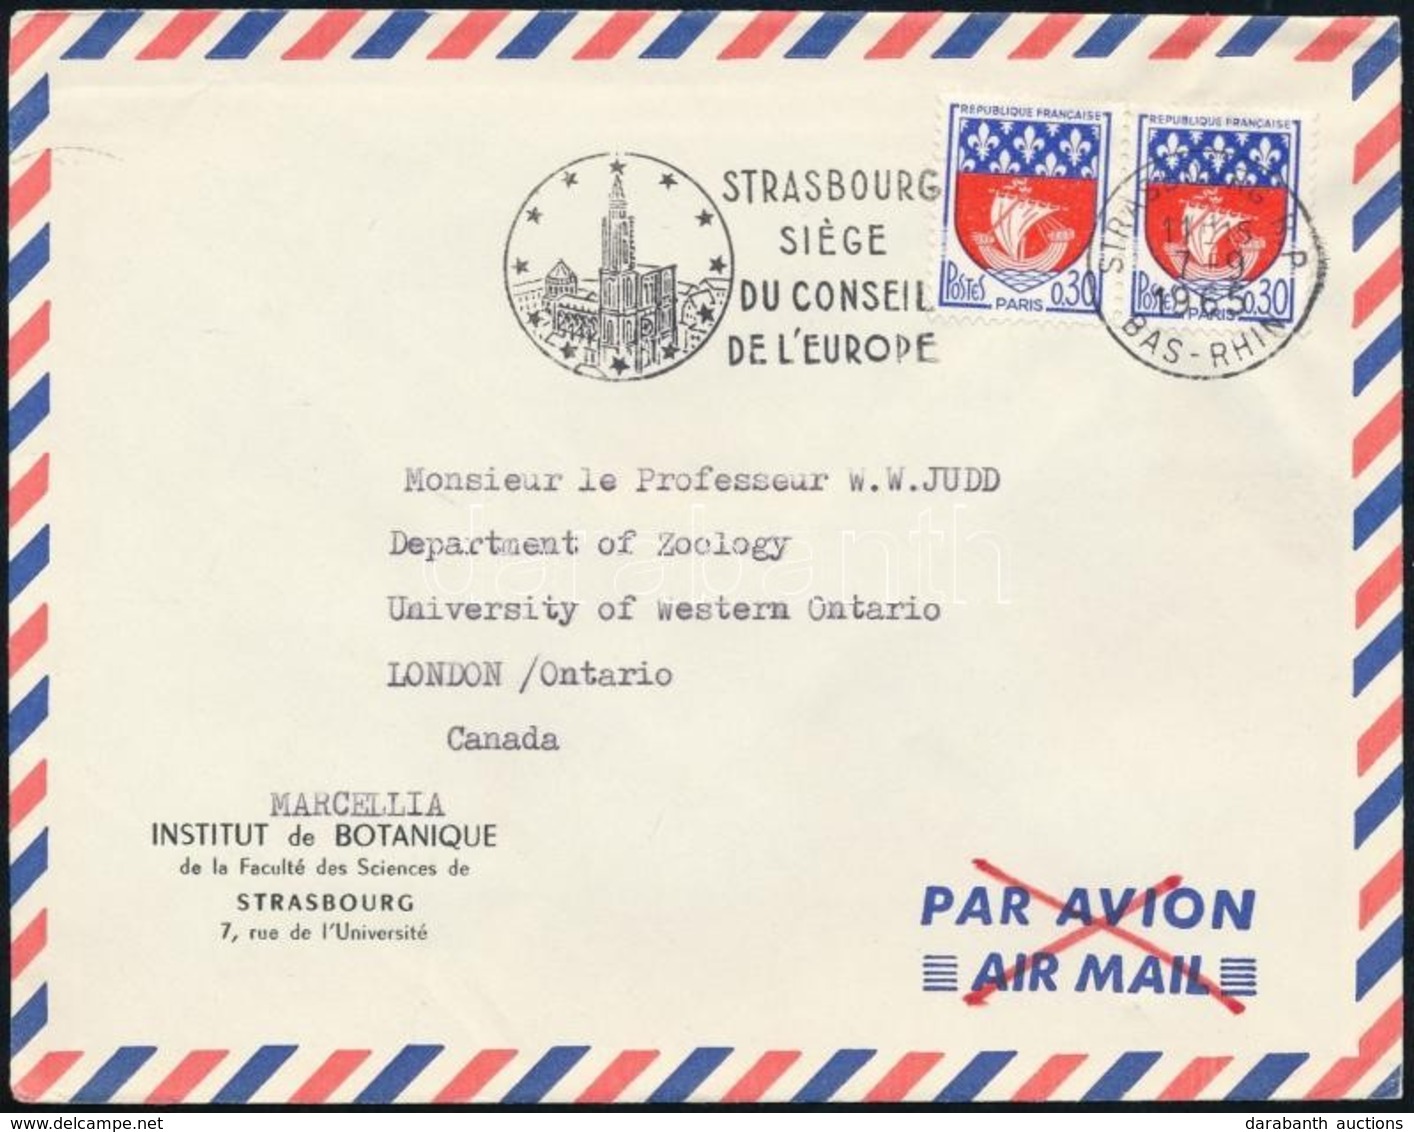 REPUBLIQUE FRANÇAISE
POSTES
PARIS
0,30
REPUBLIQUE FRANÇAISE
POSTES
PARIS
0,30
STRASBOURG
SIÈGE
DU CONSEIL
DE L'EUROPE
STRASBOURG R.P
11H15
7-9
1965
BAS-RHIN
Monsieur le Professeur W.W.JUDD
Department of Zoology
University of Western Ontario
LONDON /Ontario
Canada
MARCELLIA
INSTITUT de BOTANIQUE
de la Faculté des Sciences de
STRASBOURG
7, rue de l'Université
PAR AVION
AIR MAIL
darabanth
darabanth auctions